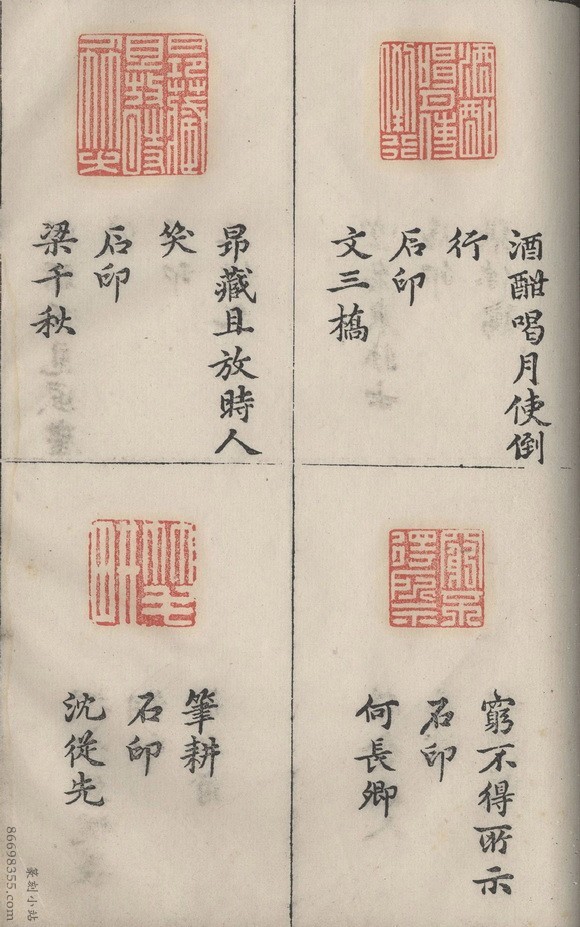 酒酣喝月使倒
行
石印
文三橋
昻藏且放時人
笑
石印
梁千秋
窮不得所示
石印
何長卿
筆耕
石印
沈從先
篆刻小站
86698355.com